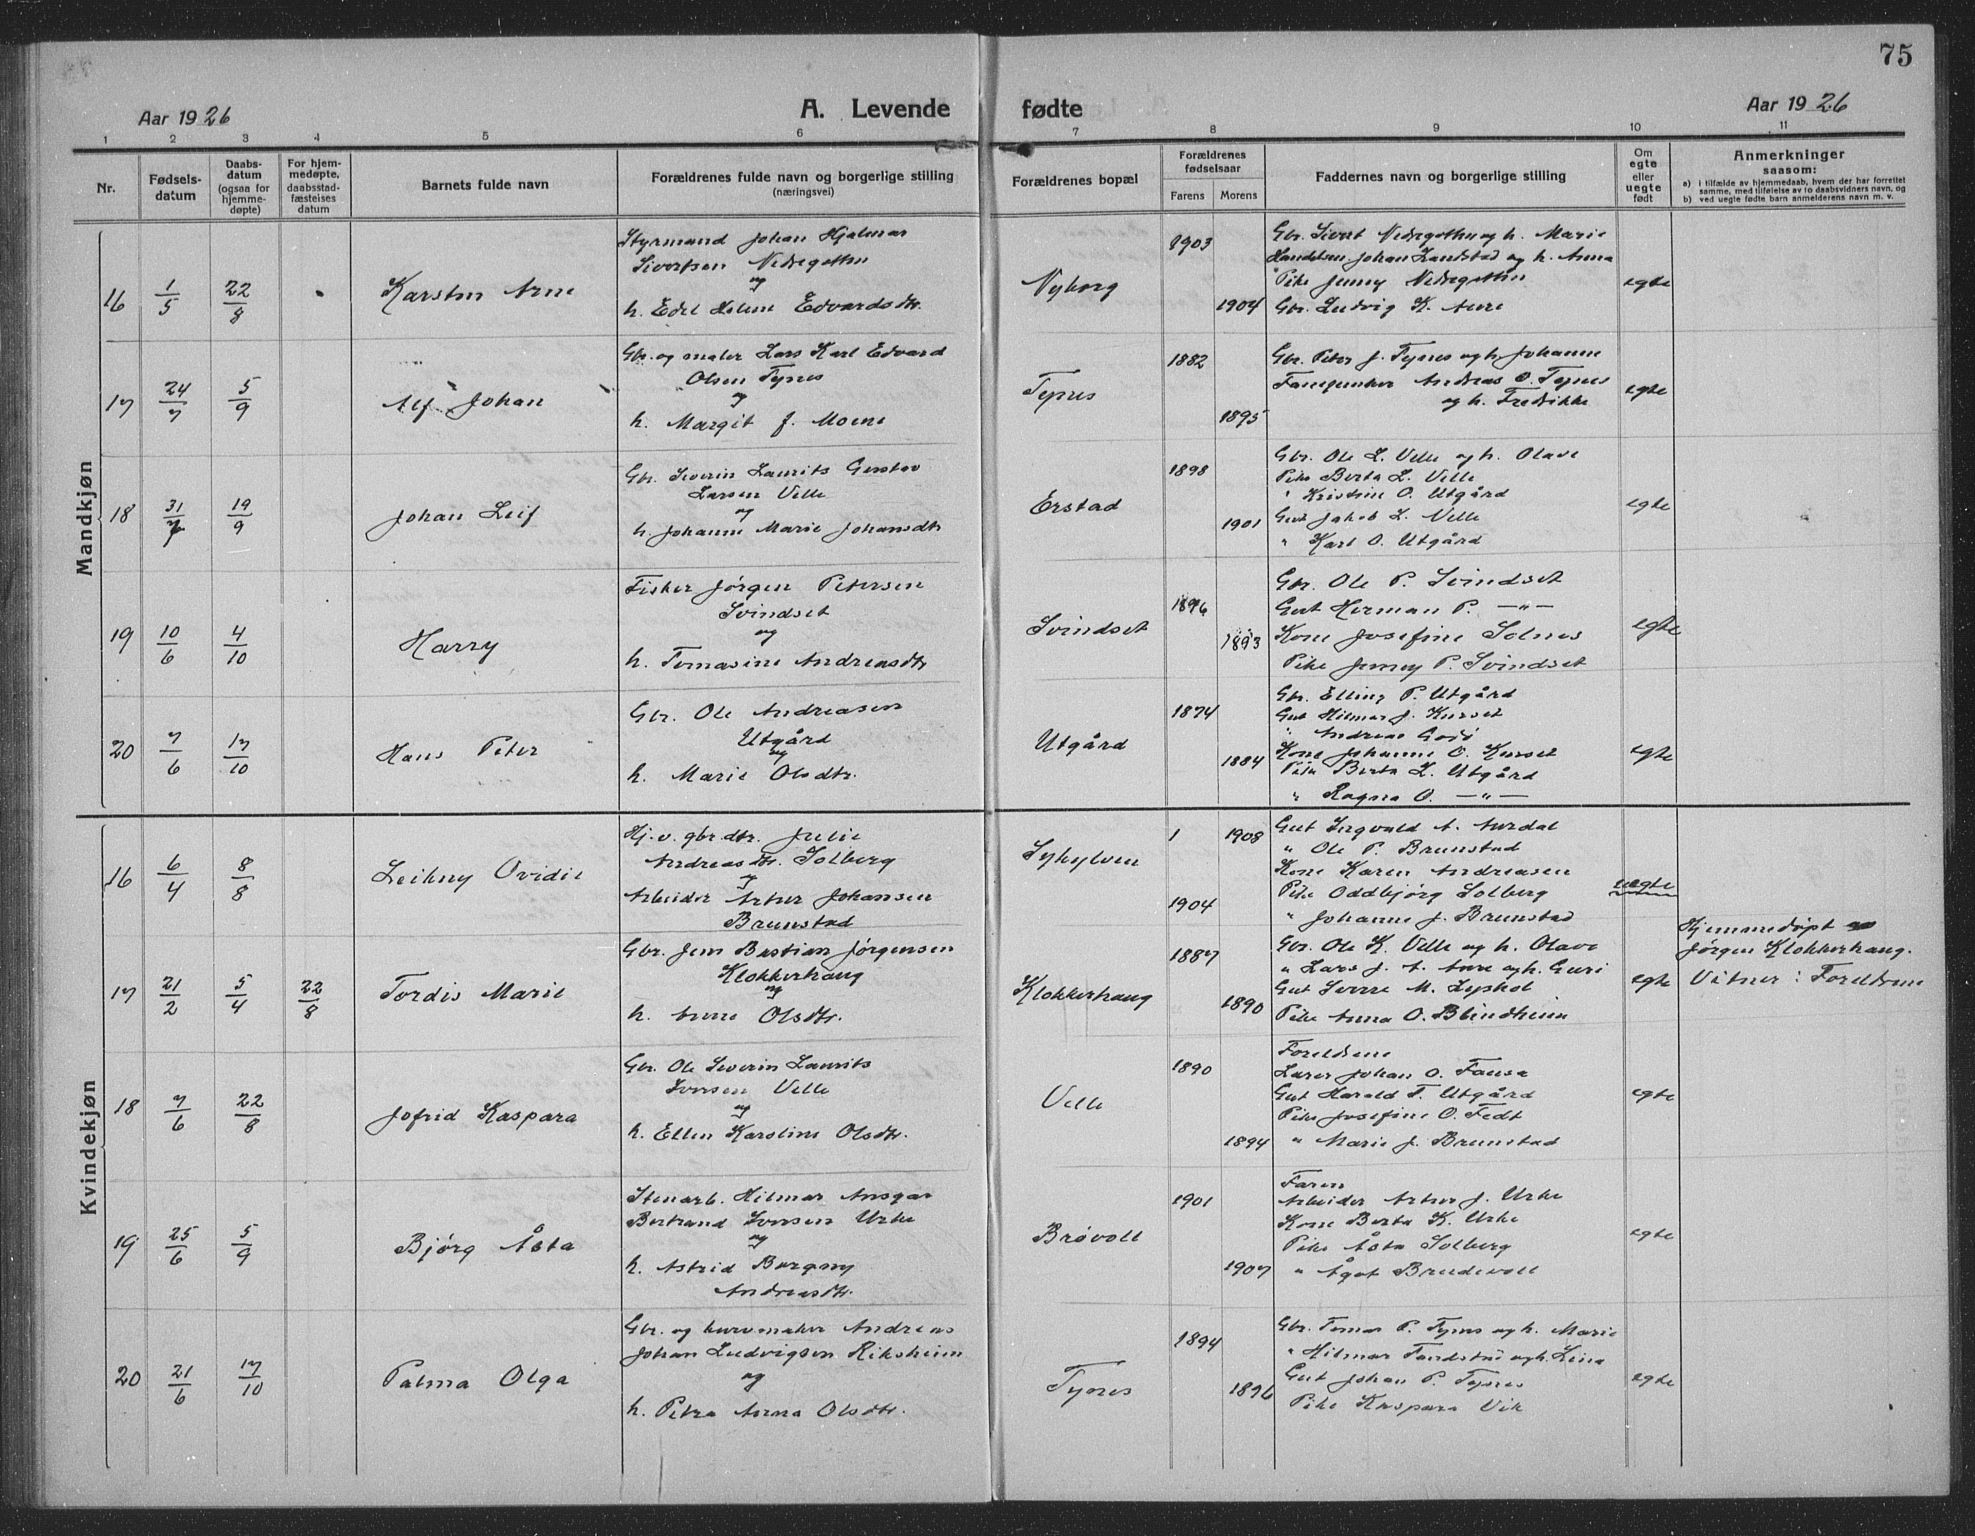 75
Aar 1926
A. Levende fødte
Aar 1926
1 2 3 4 5 6 7 8 9 10 11
Nr.
Fødsels-
datum
Daabs-
datum
(ogsaa for
hjemme-
døpte)
For hjem-
medøpte,
daabsstad-
fæstelses
datum
Barnets fulde navn
Forældrenes fulde navn og borgerlige stilling
(næringsvei)
Forældrenes bopæl
Forældrenes
fødselsaar
Farens Morens
Faddernes navn og borgerlige stilling
Om
egte
eller
uegte
født
Anmerkninger
saasom:
a) i tilfælde av hjemmedaab, hvem der har forrettet
samme, med tilføielse av to daabsvidners navn, og
b) ved uegte fødte barn anmelderens navn m. v.
Mandkjøn
16 1/5 22/8 Karsten Arne
Styrmand Johan Hjalmar
Sivertsen Nedregotten
og
h. Edel Helene Edvardsdtr.
Nyborg
1903
1904
Gbr. Sivert Nedregotten og h. Marie
Handelsm. Johan Landstad og h. Anna
Pike Jenny Nedregotten
Gbr. Ludvig K. Aure
egte
17 24/7 5/9 Alf Johan
Gbr. og maler Lars Karl Edvard
Olsen Tynes
og
h. Margit J. Moene
Tynes
1882
1895
Gbr. Peter J. Tynes og h. Johanne
Andreas O. Tynes
og h. Fredrikke
egte
18 31/7 19/9 Johan Leif
Gbr. Severin Laurits Gustav
Larsen Velle
og
h. Johanne Marie Johansdtr
Erstad
1898
1901
Gbr. Ole L. Velle og h. Olave
Pike Berta L. Velle
" Kristine O. Utgård
Gut Jakob L. Velle
" Karl O. Utgård
egte
19 10/6 4/10 Harry
Fisker Jørgen Petersen
Svindset
og
h. Tomasine Andreasdtr
Svindset
1896
1893
Gbr. Ole P. Svindset
Gut Herman P. —"—
Kone Josefine Solnes
Pike Jenny P. Svindset
egte
20 7/6 17/10 Hans Peter
Gbr. Ole Andreasen
Utgård
og
h. Marie Olsdtr.
Utgård
1874
1884
Gbr. Elling P. Utgård
Gut Hilmar J. Kurset
" Andreas
Kone Johanne O. Kurset
Pike Berta L. Utgård
" Ragna O. —"—
egte
Kvindekjøn
16 6/4 8/8 Leikny Ovidie
Hj. v. gbr.dtr. Julie
Andreasdtr. Solberg
og
Arbeider Artur Johansen
Brunstad
Sykylven
1 1908
1904
Gut Ingvald A. Aurdal
" Ole P. Brunstad
Kone Karen Andreasen
Pike Oddbjørg Solberg
" Johanne J. Brunstad
uegte
17 21/2 5/4 22/8 Tordis Marie
Gbr. Jens Bastian Jørgensen
Klokkerhaug
og
h. Anne Olsdtr.
Klokkerhaug
1887
1890
Gbr. Ole K. Velle og h. Olave
" Lars J. A. Aure og h. Guri
Gut Sverre M. Lyshol
Pike Anna O. Blindheim
egte
Hjemmedøpt av
Jørgen Klokkerhaug.
Vitner: Foreldrene
18 7/6 22/8 Jofrid Kaspara
Gbr. Ole Severin Laurits
Iversen Velle
og
h. Ellen Karoline Olsdtr.
Velle
1890
1894
Foreldrene
Lærer Johan O. Fausa
Gut Harald T. Utgård
Pike Josefine O. Fedt
" Marie J. Brunstad
egte
19 25/6 5/9 Bjørg Åsta
Stenarb. Hilmar Ansgar
Bertrand Iversen Urke
og
h. Astrid Borgny
Andreasdtr.
Brøvoll
1901
1907
Faren
Arbeider Artur J. Urke
Kone Berta K. Urke
Pike Åsta Solberg
" Ågot Brudevoll
egte
20 21/6 17/10 Palma Olga
Gbr. og kurvmaker Andreas
Johan Ludvigsen Riksheim
og
h. Petra Anna Olsdtr.
Tynes
1894
1896
Gbr. Tomas P. Tynes og h. Marie
" Hilmar Tandstad og h. Lina
Gut Johan P. Tynes
Pike Kaspara Vik
egte